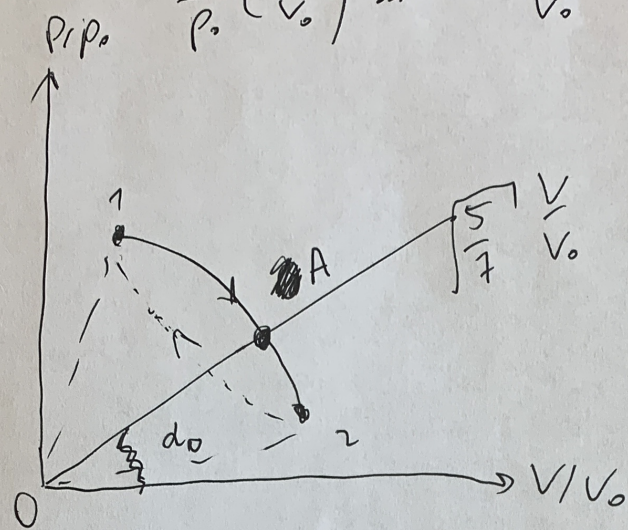 p/p₀
p₀ (V₀)
V₀
1
A
√5/7 V/V₀
α₀
2
0
V/V₀